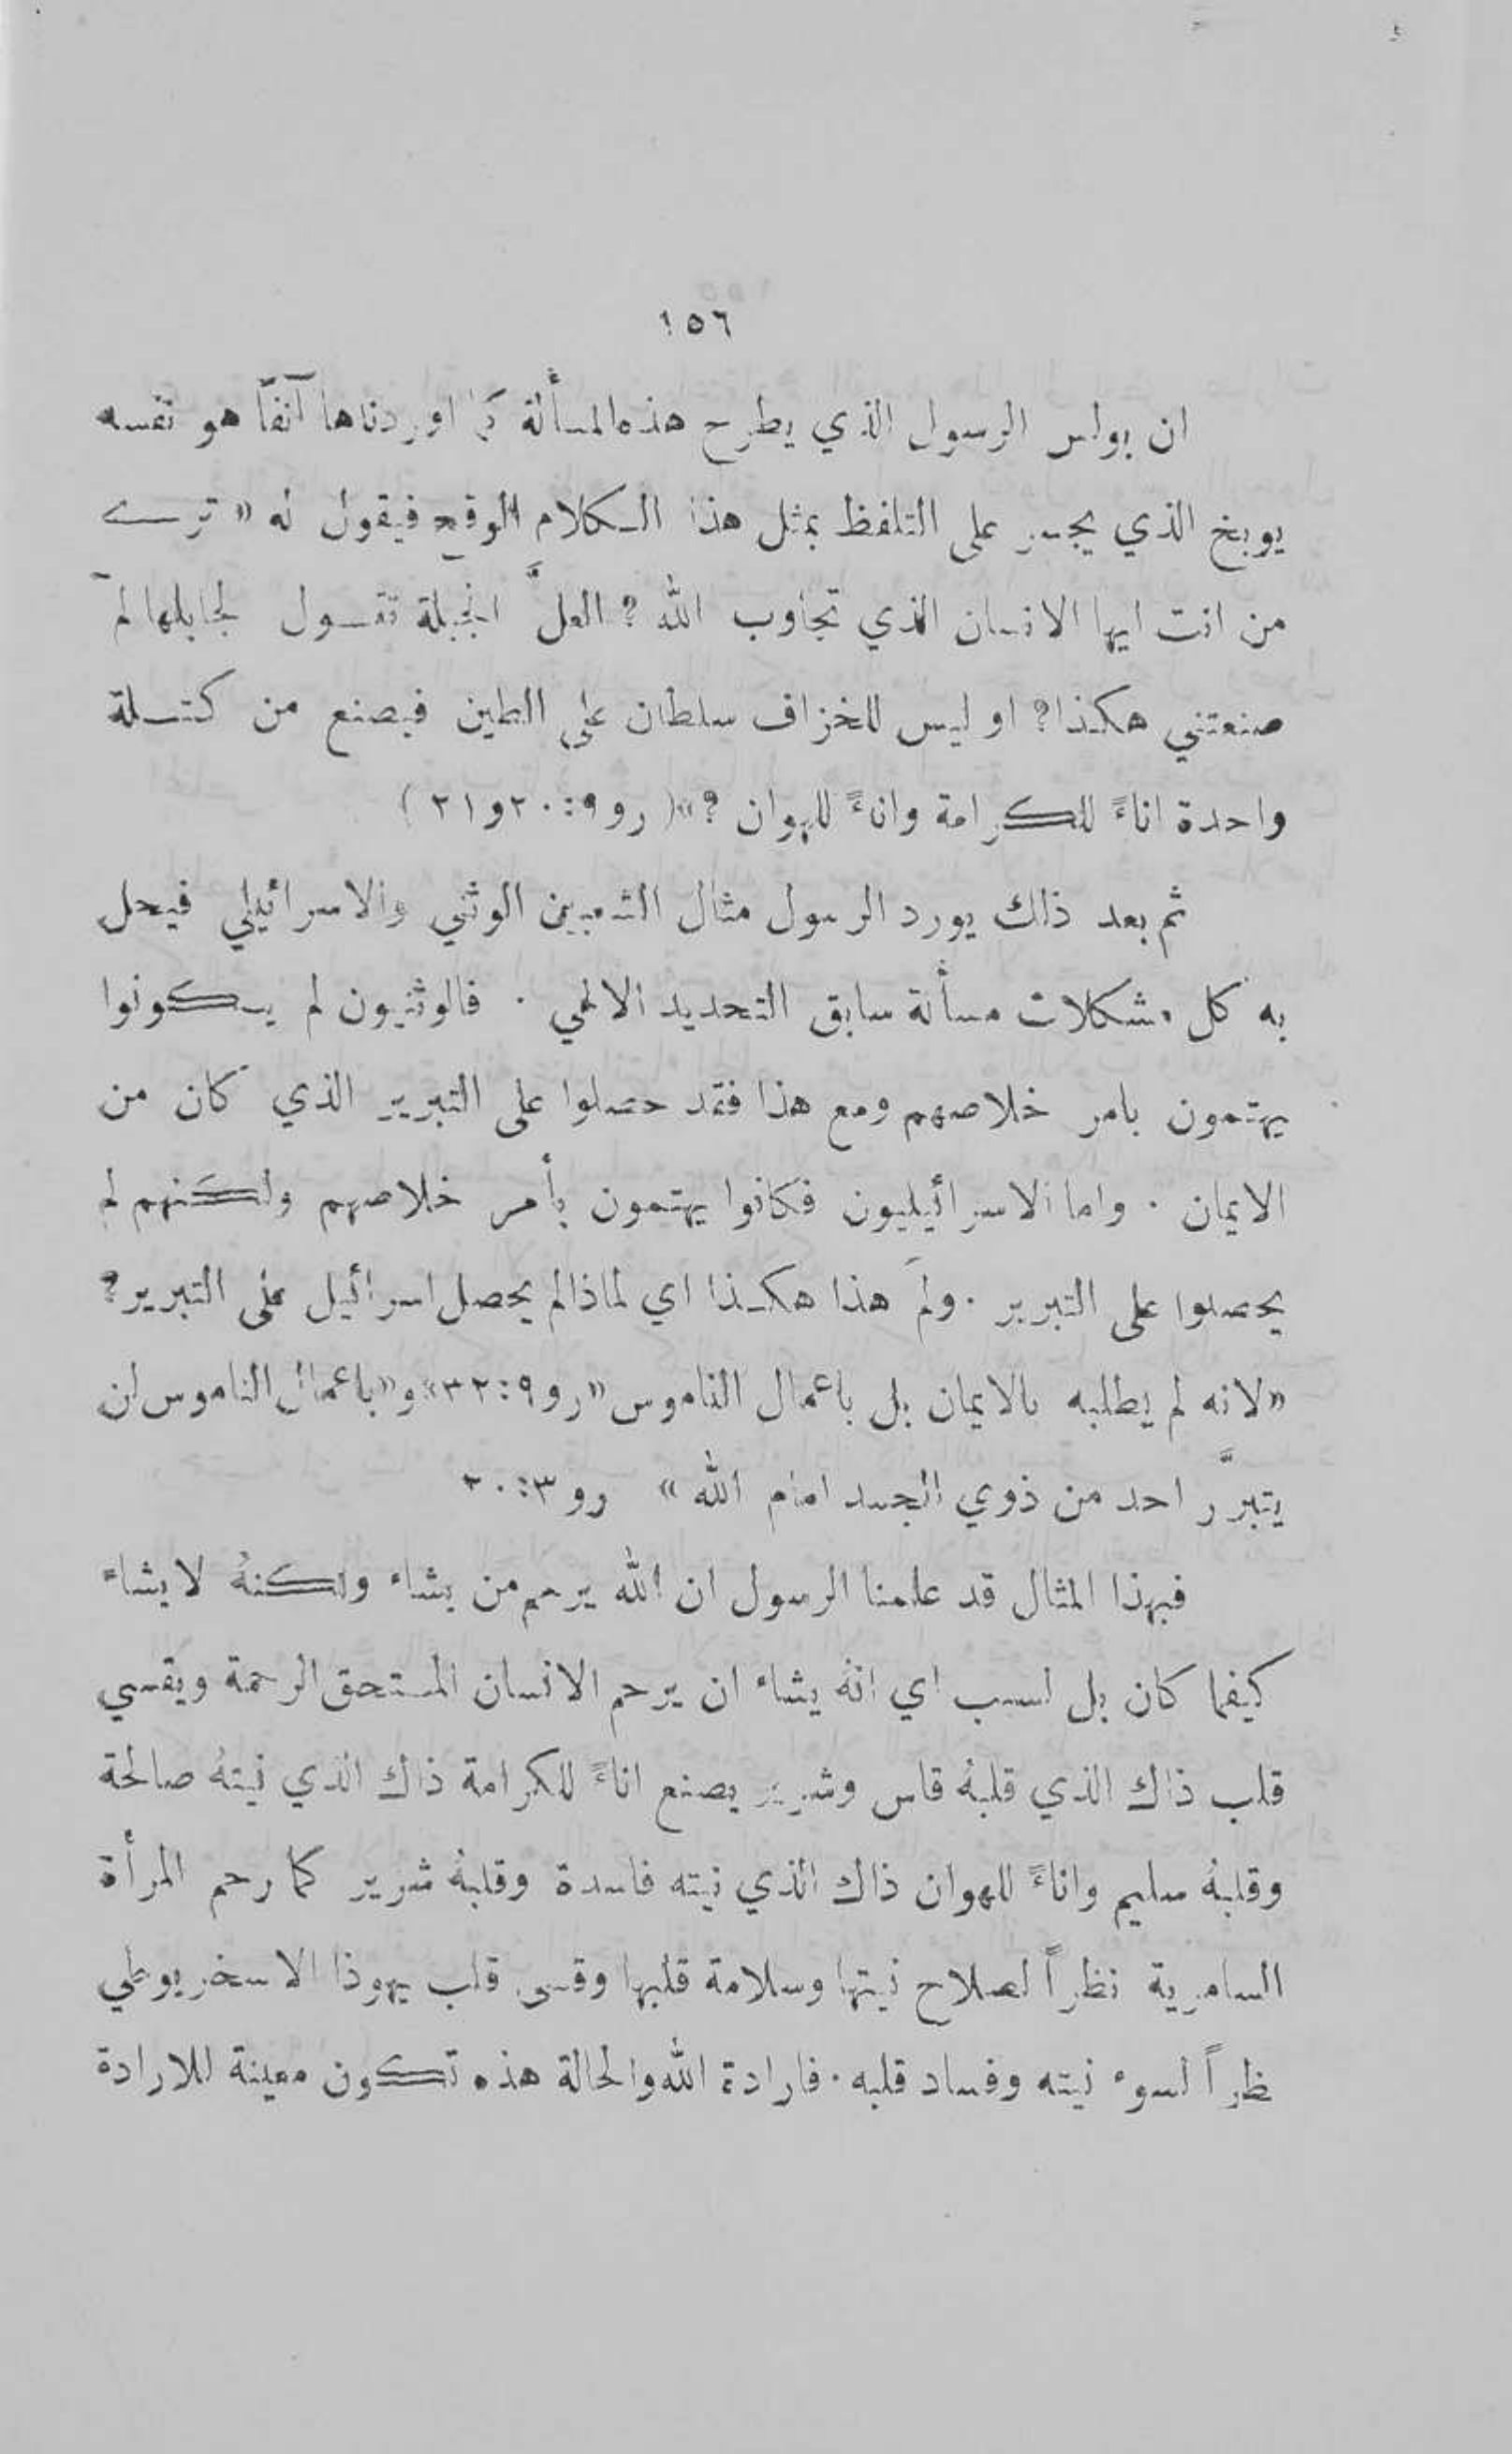 ١٥٦
ان بولس الرسول الذي يطرح هذه المسألة كما اوردناها آنفاً هو نفسه
يوبخ الذي يجسر على التلفظ بمثل هذا الكلام الوقح فيقول له « ترے
من انت ايها الانسان الذي تجاوب الله ? العلَّ الجبلة تقول لجابلها لمَ
صنعتني هكذا? او ليس للخزاف سلطان على الطين فيصنع من كتلة
واحدة اناءً للكرامة واناءً للهوان ?» ( رو٩: ٢٠و٢١ )
ثم بعد ذلك يورد الرسول مثال الشعبين الوثني والاسرائيلي فيحل
به كل مشكلات مسألة سابق التحديد الالهي . فالوثنيون لم يكونوا
يهتمون بامر خلاصهم ومع هذا فقد حصلوا على التبرير الذي كان من
الايمان . واما الاسرائيليون فكانوا يهتمون بأمر خلاصهم ولكنهم لم
يحصلوا على التبرير . ولمَ هذا هكذا اي لماذا لم يحصل اسرائيل على التبرير?
«لانه لم يطلبه بالايمان بل باعمال الناموس «رو٩: ٣٢» و«باعمال الناموس لن
يتبرَّر احد من ذوي الجسد امام الله » رو ٣: ٢٠
فبهذا المثال قد علمنا الرسول ان الله يرحم من يشاء ولكنهُ لا يشاء
كيفما كان بل لسبب اي انهُ يشاء ان يرحم الانسان المستحق الرحمة ويقسي
قلب ذاك الذي قلبهُ قاس وشرير يصنع اناءً للكرامة ذاك الذي نيتهُ صالحة
وقلبهُ سليم واناءً للهوان ذاك الذي نيته فاسدة وقلبهُ شرير كما رحم المرأة
السامرية نظراً لصلاح نيتها وسلامة قلبها وقسى قلب يهوذا الاسخريوطي
ظراً لسوء نيته وفساد قلبه . فارادة الله والحالة هذه تكون معينة للارادة